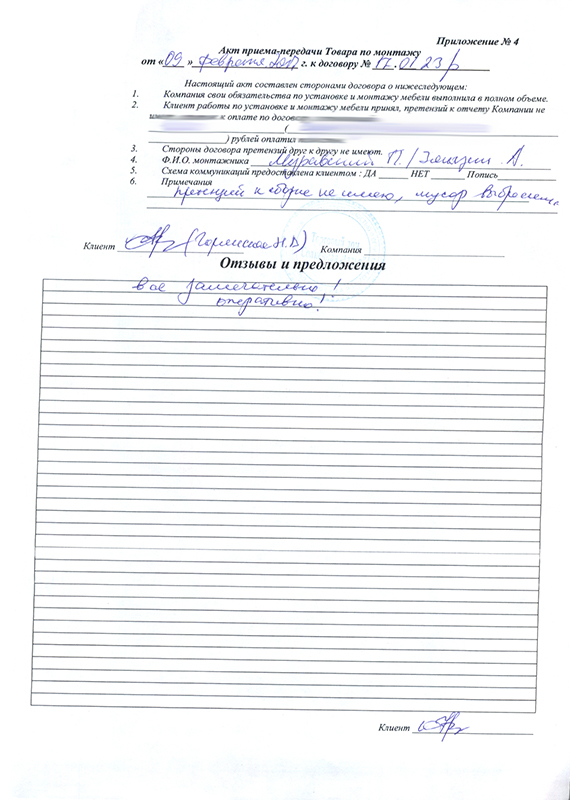 Приложение № 4
Акт приема-передачи Товара по монтажу
от «09» февраля 2017 г. к договору № 17.01.23р
Настоящий акт составлен сторонами договора о нижеследующем:
1. Компания свои обязательства по установке и монтажу мебели выполнила в полном объеме.
2. Клиент работы по установке и монтажу мебели принял, претензий к отчету Компании не
к оплате по
(
) рублей оплатил
3. Стороны договора претензий друг к другу не имеют.
4. Ф.И.О. монтажника П./ А.
5. Схема коммуникаций предоставлена клиентом : ДА НЕТ Попись
6. Примечания
претензий к сборке не имею, мусор
Клиент Компания
Отзывы и предложения
все замечательно!
оперативно!
Клиент